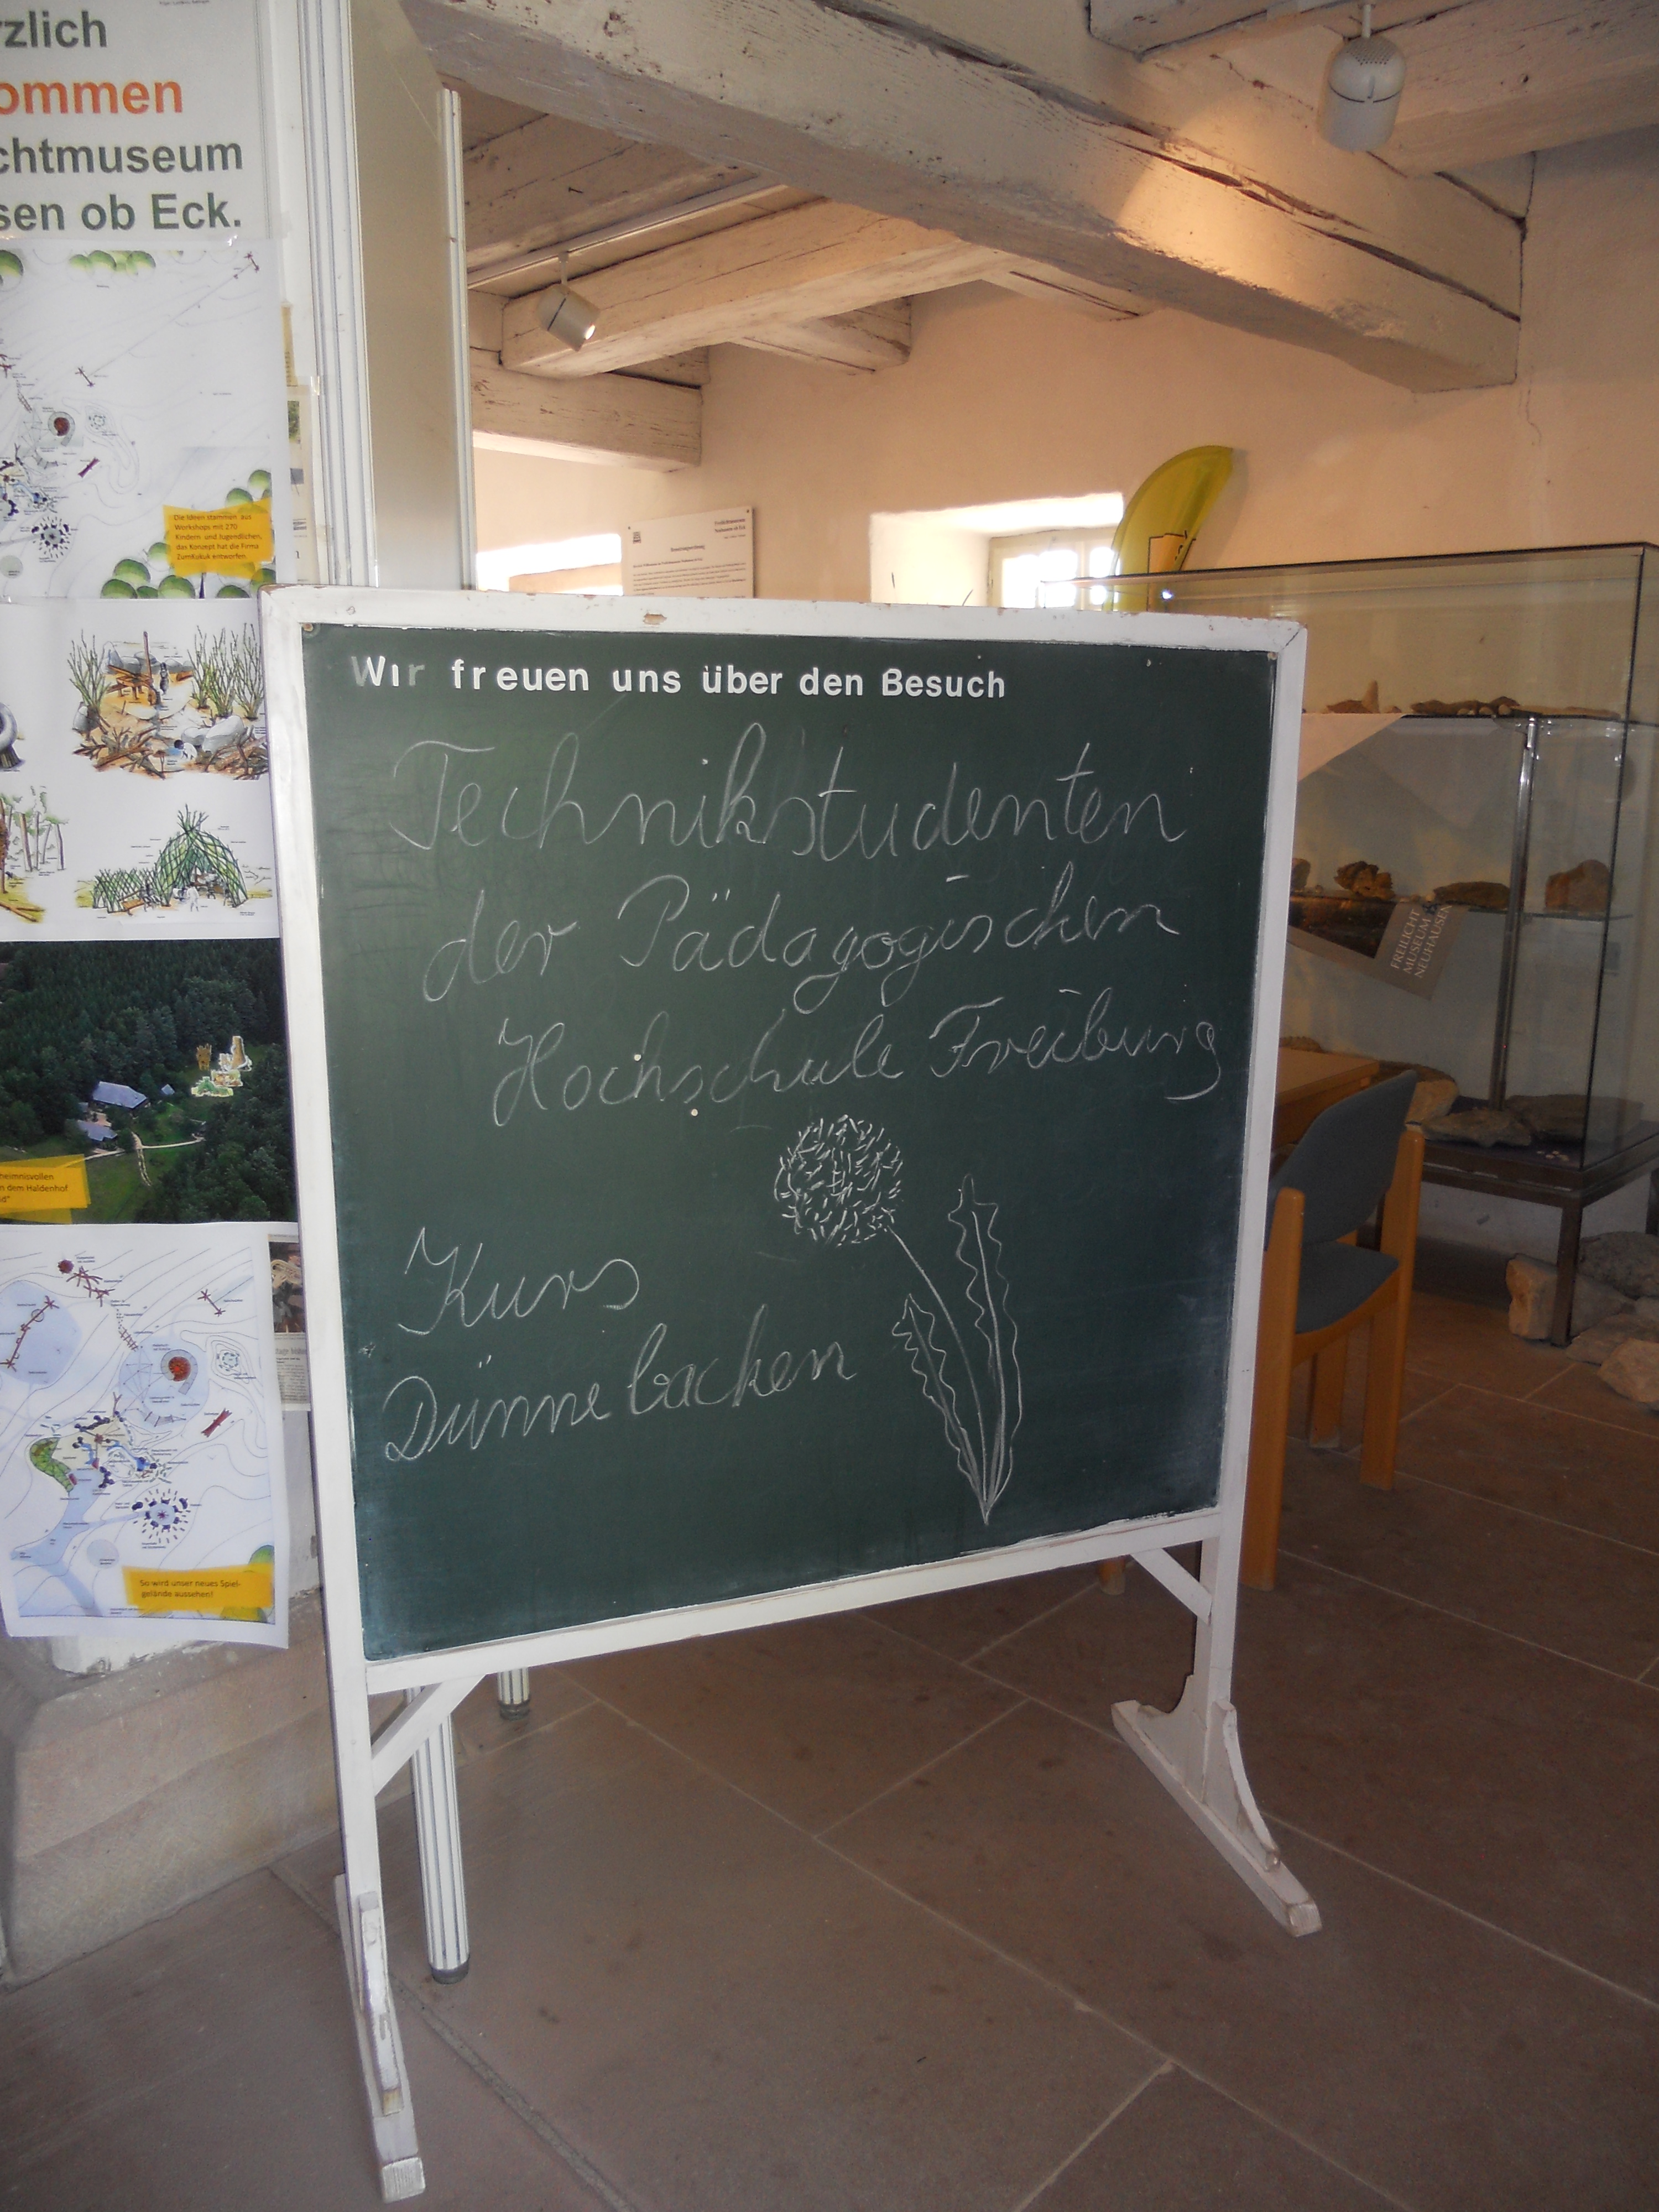 zlich
ommen
chtmuseum
sen ob Eck.
Die Ideen stammen aus
Workshops mit 270
Kindern und Jugendlichen,
das Konzept hat die Firma
Zumkukuk entworfen.
Wir freuen uns über den Besuch
Technikstudenten
der Pädagogischen
Hochschule Freiburg
Kurs
Dünnebacken
FREILICHT
MUSEUM
NEUHAUSEN
heimnisvollen
n dem Haldenhof
ld"
So wird unser neues Spiel-
gelände aussehen!